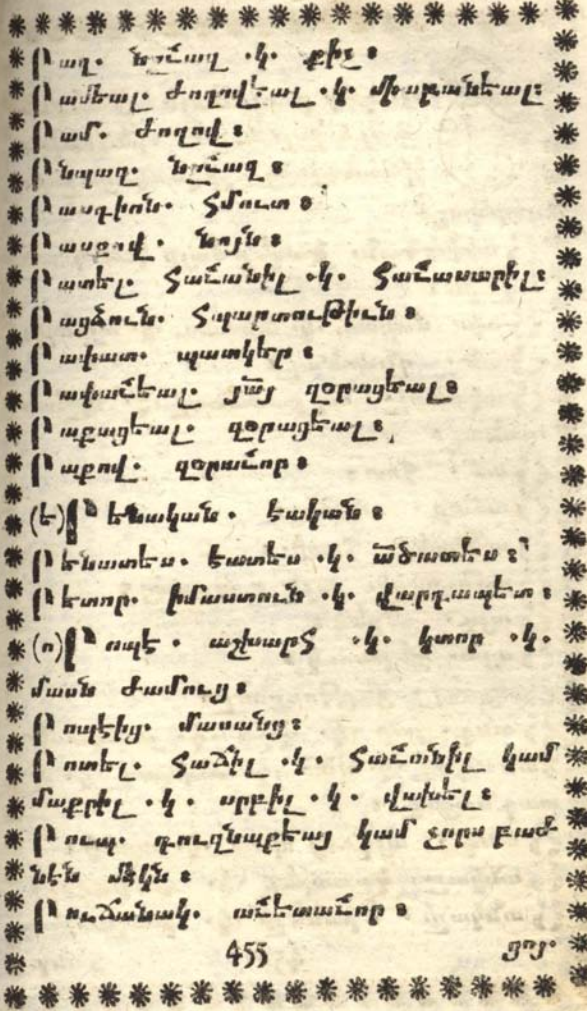 Ռաղ. նըւաղ .կ. քիչ:
Ռամեալ. ժողովեալ .կ. միաբանեալ:
Ռամ. ժողով:
Ռնպաղ. նըւազ:
Ռասգիոն. հմուտ:
Ռասջով. նոյն:
Ռատել. հաւանիլ .կ. հաւասարիլ:
Ռացձուն. հպարտութիւն:
Ռափատ. պատկեր:
Ռափաւեալ. զօրացեալ:
Ռաքացեալ. զօրացեալ:
Ռաքով. զօրաւոր:
(ե) Ռենական. էական:
Ռենատես. էատես .կ. ած̅ատես:
Ռետոր. իմաստուն .կ. վարդապետ:
(ո) Ռոպէ. .կ. կտոր .կ.
մասն ժամուց:
Ռոպէից. մասանց:
Ռոտել. հաճիլ .կ. հաւընիլ կամ
մաքրիլ .կ. սրբիլ .կ. վախել:
Ռուպ. գուզնաքեայ կամ չորս բաժ
նէն մէկն:
Ռուճանակ. աւետաւոր:
455 ցոյ.